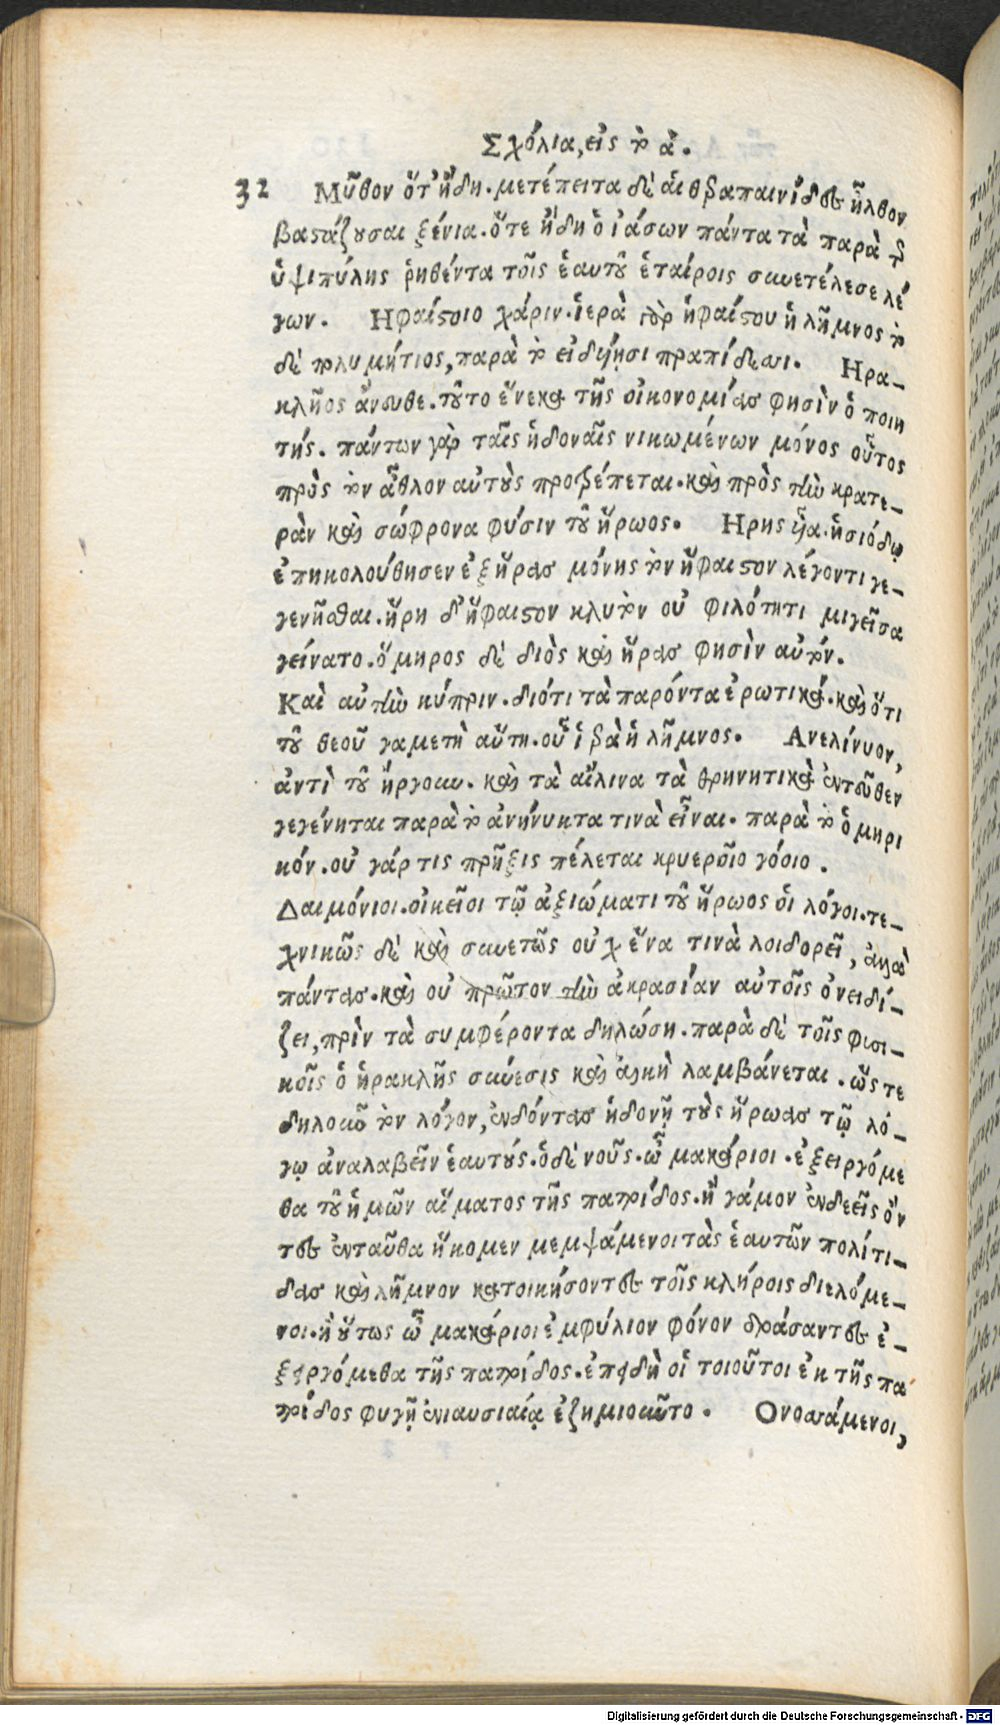 Σχόλια, εἰς τὸ ἀ.
32 Μῦθον ὅτ' ἤδη. μετέπειτα δὲ αἱ θεραπαινίδες ἦλθον
βαστάζουσαι ξένια. ὅτε ἤδη ὁ ἰάσων πάντα τὰ παρὰ τῆς
ὑψιπύλης ῥηθέντα τοῖς ἑαυτοῦ ἑταίροις συνετέλεσε λέ
γων. Ηφαίστοιο χάριν. ἱερὰ τοῦ ἡφαίστου ἡ λῆμνος τὸ
δὲ πολυμήτιος, παρὰ τὸ εἰδυίῃσι πραπίδεσσι. Ηρα-
κλῆος ἄνευθε. τοῦτο ἕνεκα τῆς οἰκονομίας φησὶν ὁ ποιη
τής. πάντων γὰρ ταῖς ἡδοναῖς νικωμένων μόνος οὗτος
πρὸς τὸν ἆθλον αὐτοὺς προτρέπεται. καὶ πρὸς τὴν κρατε-
ρὰν καὶ σώφρονα φύσιν τοῦ ἥρωος. Ηρης εἷα. ἡσιόδῳ
ἐπηκολούθησεν ἐξ ἥρας μόνης τὸν ἥφαιστον λέγοντι γε-
γενῆσθαι. ἥρη δ' ἥφαιστον κλυτὸν οὐ φιλότητι μιγεῖσα
γείνατο. ὅμηρος δὲ διὸς καὶ ἥρας φησὶν αὐτόν.
Καὶ αὐτὴν κύπριν. διότι τὰ παρόντα ἐρωτικά. καὶ ὅτι
τοῦ θεοῦ γαμετὴ αὕτη. οὗ ἱερὰ ἡ λῆμνος. Ανελίνυον,
ἀντὶ τοῦ ἤργουν. καὶ τὰ αἴλινα τὰ θρηνητικὰ ἐντεῦθεν
γεγένηται παρὰ τὸ ἀνήνυκτα τινὰ εἶναι. παρὰ τὸ ὁμηρι
κόν. οὐ γάρ τις πρῆξις πέλεται κρυεροῖο γόοιο.
Δαιμόνιοι. οἰκεῖοι τῷ ἀξιώματι τοῦ ἥρωος οἱ λόγοι. τε-
χνικῶς δὲ καὶ συνετῶς οὐχ ἕνα τινὰ λοιδορεῖ, ἀλλὰ
πάντας. καὶ οὐ πρῶτον τὴν ἀκρασίαν αὐτοῖς ὀνειδί-
ζει, πρὶν τὰ συμφέροντα δηλώσῃ. παρὰ δὲ τοῖς φυσι-
κοῖς ὁ ἡρακλῆς σύνεσις καὶ ἀλκὴ λαμβάνεται. ὥς τε
δηλοῦν τὸν λόγον, ἐνδόντας ἡδονῇ τοὺς ἥρωας τῷ λό-
γῳ ἀναλαβεῖν ἑαυτούς. ὁ δὲ νοῦς. ὦ μακάριοι. ἐξειργόμε
θα τοῦ ἡμῶν αἵματος τῆς πατρίδος. ἢ γάμον ἐνδεεῖς ὄν
τες ἐνταῦθα ἥκομεν μεμψάμενοι τὰς ἑαυτῶν πολίτι-
δας καὶ λῆμνον κατοικήσοντες τοῖς κλήροις διελόμε-
νοι. ἢ οὕτως ὦ μακάριοι ἐμφύλιον φόνον δράσαντες ἐ-
ξειργόμεθα τῆς πατρίδος. ἐπειδὴ οἱ τοιοῦτοι ἐκ τῆς πα
τρίδος φυγῇ ἐνιαυσιαίᾳ ἐζημιοῦντο. Ονοσσάμενοι,
Digitalisierung gefördert durch die Deutsche Forschungsgemeinschaft - DFG